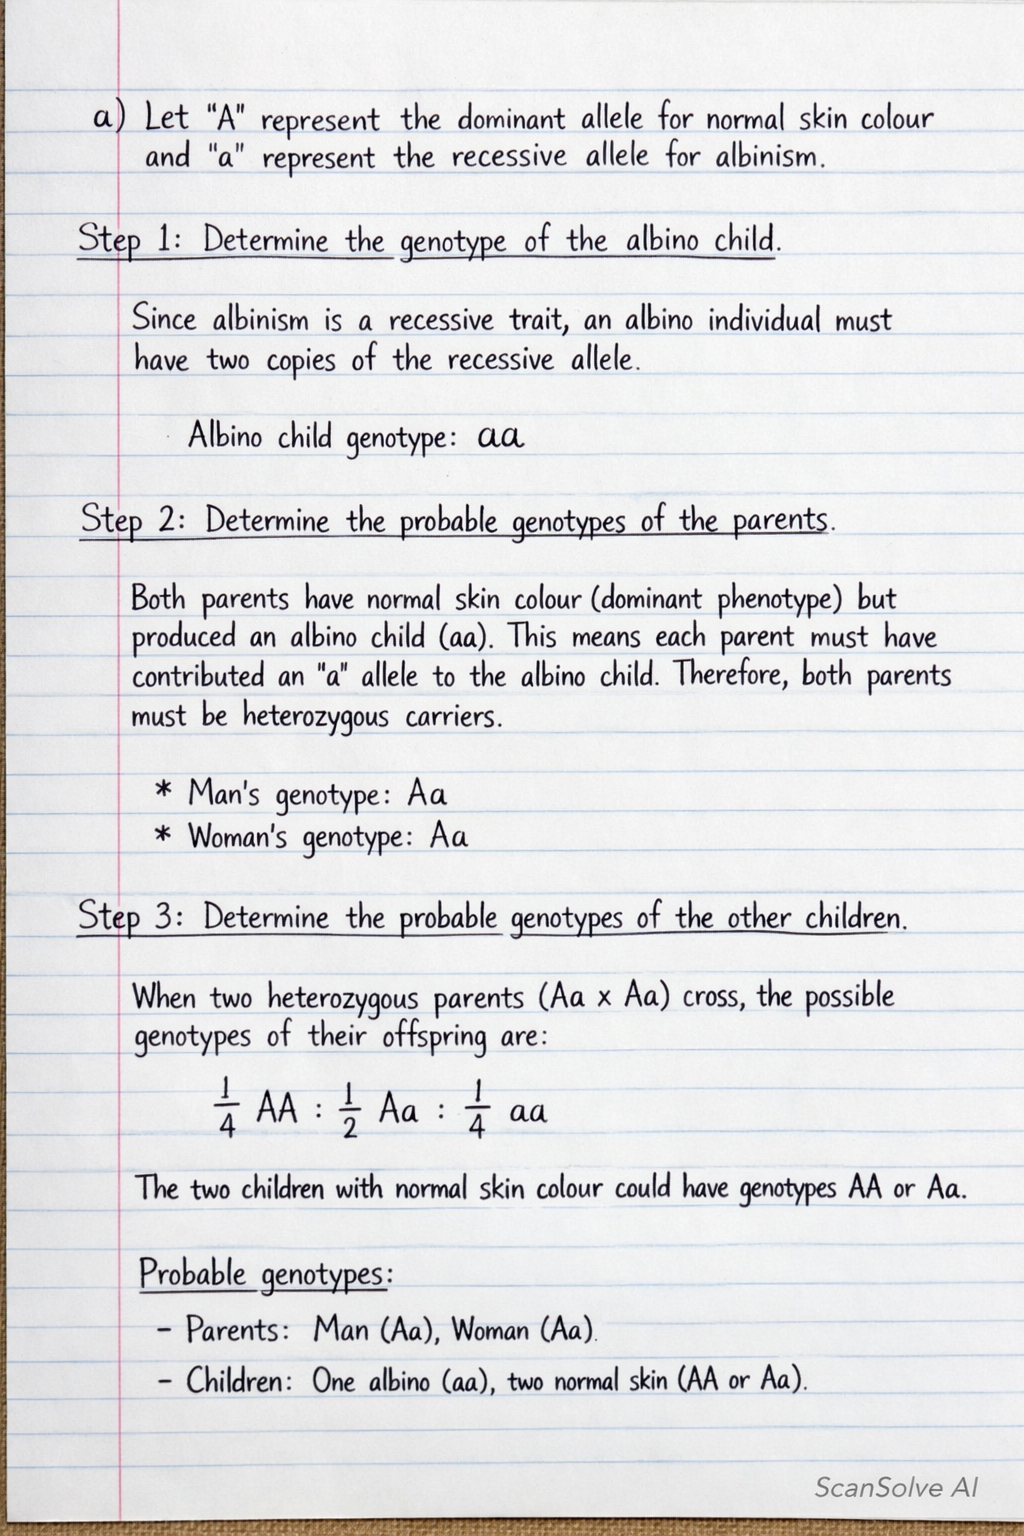 a) Let "A" represent the dominant allele for normal skin colour
and "a" represent the recessive allele for albinism.
Step 1: Determine the genotype of the albino child.
Since albinism is a recessive trait, an albino individual must
have two copies of the recessive allele.
Albino child genotype: aa
Step 2: Determine the probable genotypes of the parents.
Both parents have normal skin colour (dominant phenotype) but
produced an albino child (aa). This means each parent must have
contributed an "a" allele to the albino child. Therefore, both parents
must be heterozygous carriers.
* Man's genotype: Aa
* Woman's genotype: Aa
Step 3: Determine the probable genotypes of the other children.
When two heterozygous parents (Aa x Aa) cross, the possible
genotypes of their offspring are:
1/4 AA : 1/2 Aa : 1/4 aa
The two children with normal skin colour could have genotypes AA or Aa.
Probable genotypes:
- Parents: Man (Aa), Woman (Aa).
- Children: One albino (aa), two normal skin (AA or Aa).
ScanSolve AI